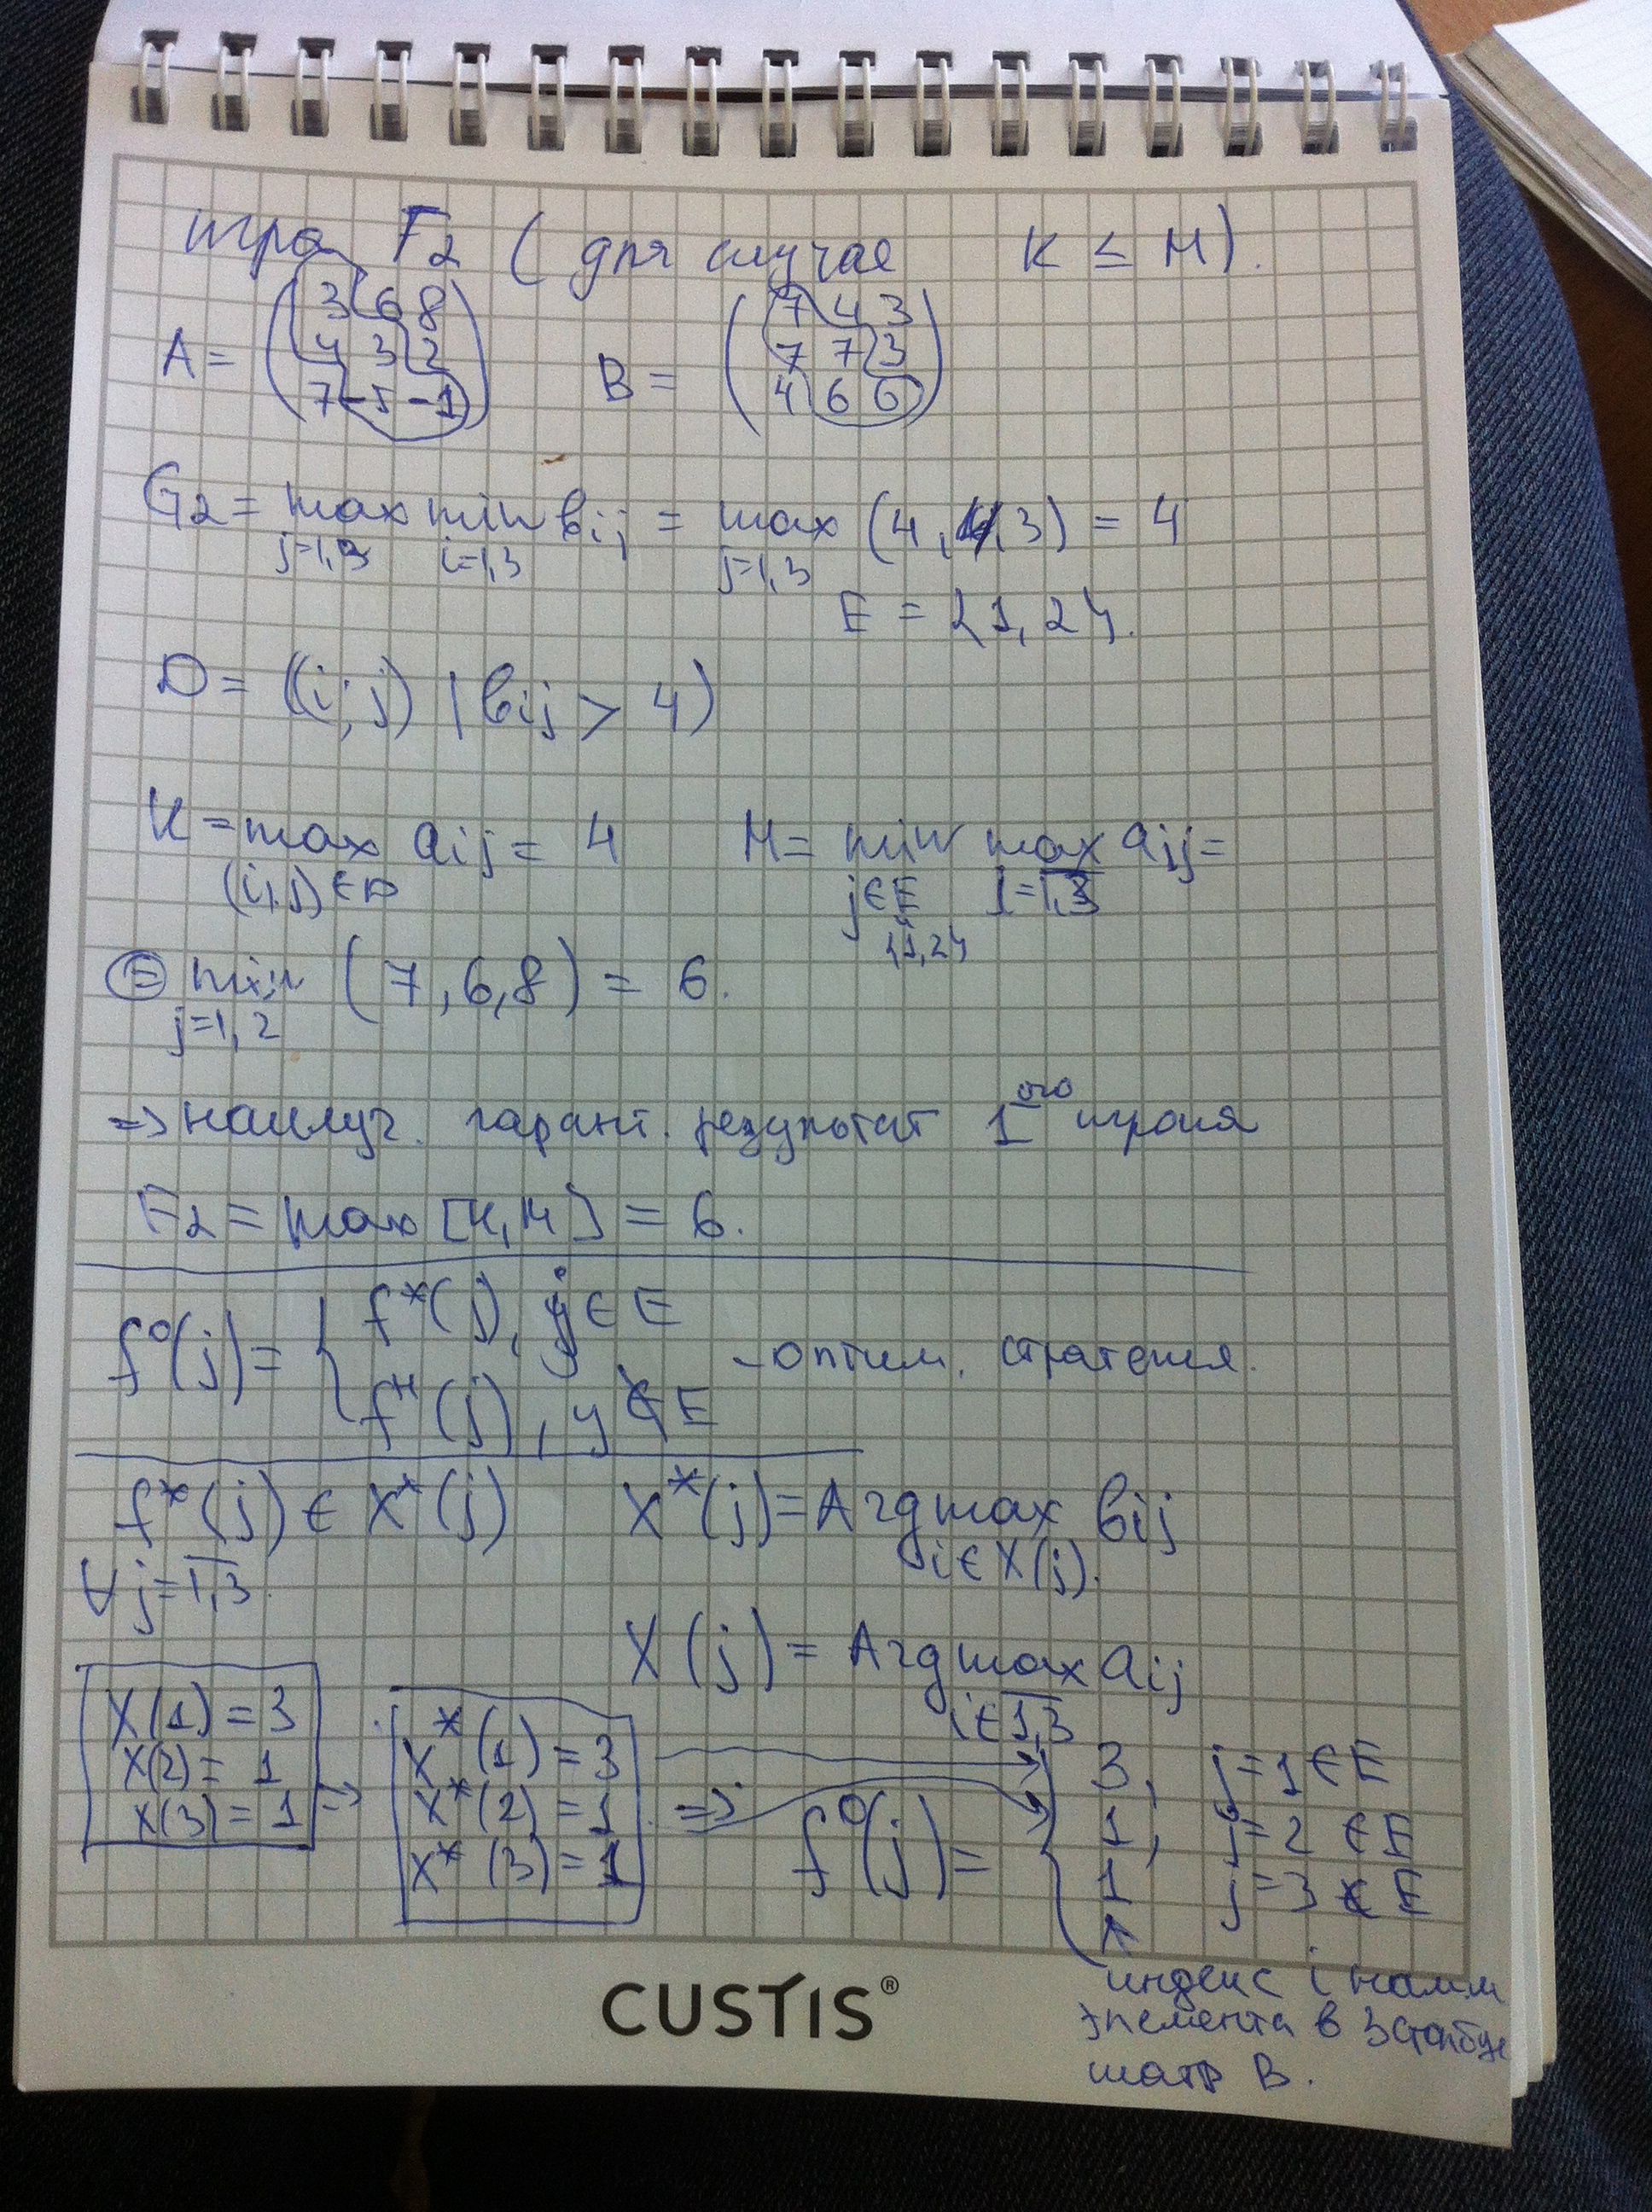 игра Г₂ ( для случае K ≤ M).
A = ( 3 6 8
4 3 2
7 -5 -1 )
B = ( 7 4 3
7 7 3
4 6 6 )
G₂ = max min bij = max (4, 4, 3) = 4
j=1,3 i=1,3 j=1,3
E = {1, 2}.
D = ((i, j) | bij > 4)
K = max aij = 4 M = min max aij =
(i,j) ∈ D j∈E i=1,3
{1,2}
= min (7, 6, 8) = 6.
j=1, 2
=> наилуч. гарант. результат 1ого игрока
F₂ = max [K, M] = 6.
f⁰(j) = { f*(j), j ∈ E
fᴴ(j), y ∉ E - оптим. стратегия.
f*(j) ∈ X*(j) X*(j) = Argmax bij
∀ j=1,3. i∈X(j).
X(j) = Argmax aij
i∈1,3
X(1) = 3
X(2) = 1
X(3) = 1 =>
X*(1) = 3
X*(2) = 1
X*(3) = 1
=> f⁰(j) = { 3, j=1 ∈ E
1, j=2 ∈ E
1 j=3 ∉ E
↑
индекс i наим
элемента в 3 столбце
матр B.
CUSTIS®